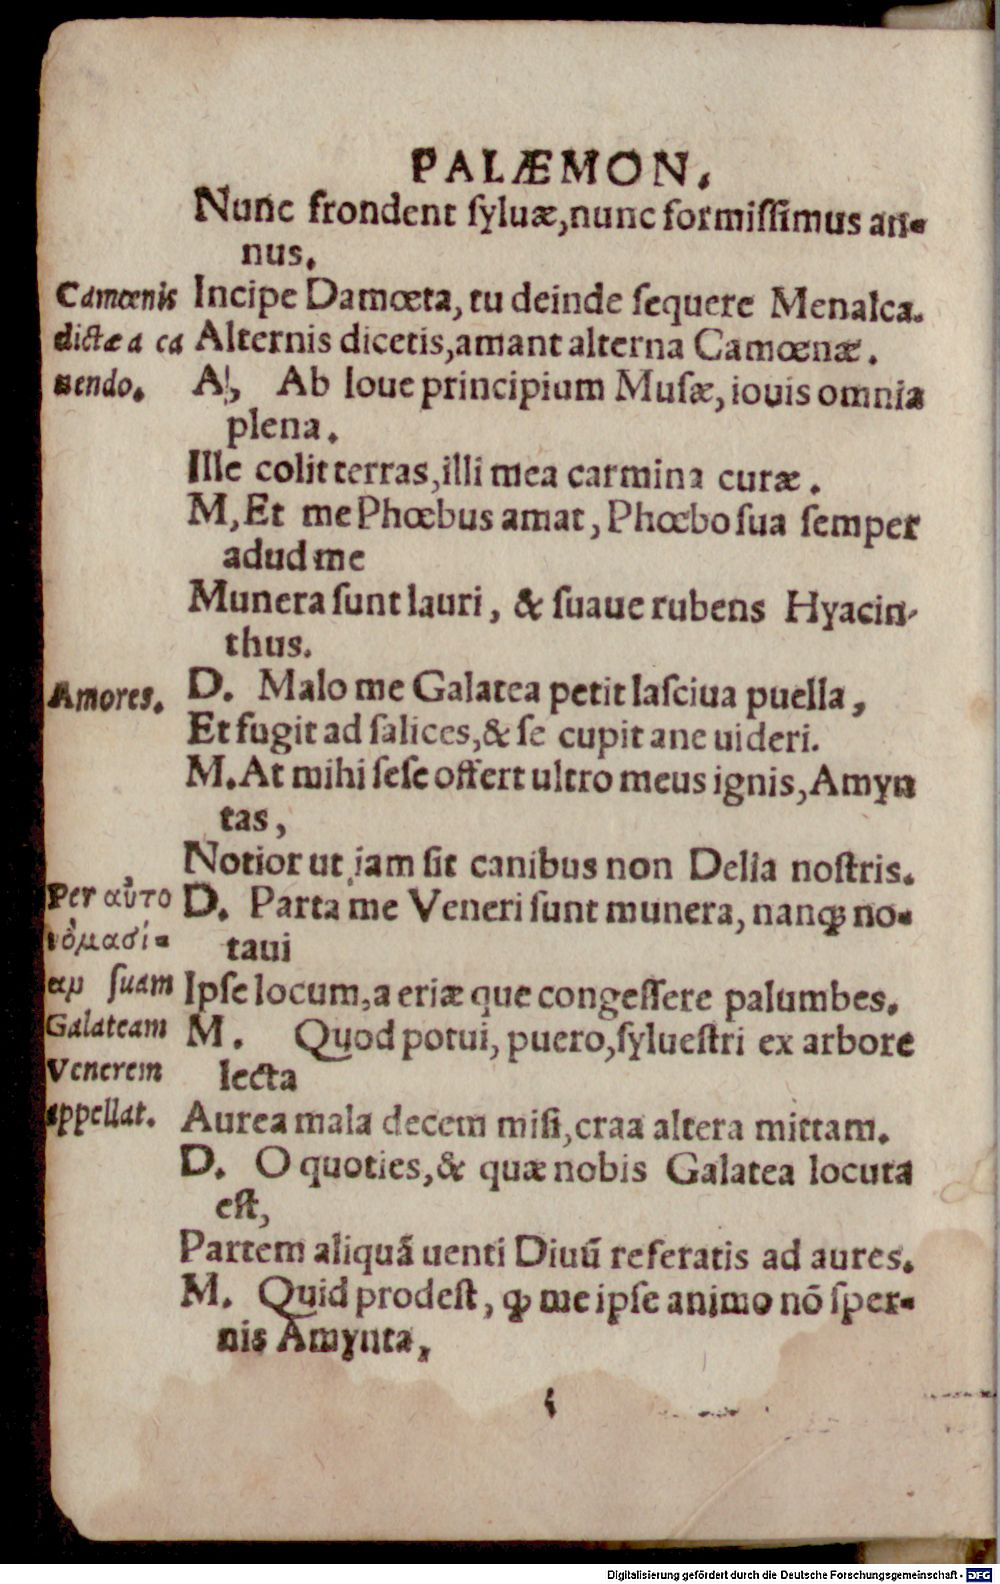 PALÆMON.
Nunc frondent ſyluæ, nunc formiſſimus an-
nus.
Camœnis
dictæ a ca
nendo.
Incipe Damœta, tu deinde ſequere Menalca.
Alternis dicetis, amant alterna Camœnæ.
Ab Ioue principium Muſæ, iouis omnia
plena.
Ille colit terras, illi mea carmina curæ.
M, Et me Phœbus amat, Phœbo ſua ſemper
adud me
Munera ſunt lauri, & ſuaue rubens Hyacin-
thus.
Amores.
D. Malo me Galatea petit laſciua puella,
Et fugit ad ſalices, & ſe cupit ane uideri.
M. At mihi ſeſe offert ultro meus ignis, Amyn
tas,
Notior ut iam ſit canibus non Delia noſtris.
Per αὐτο
νόμασί-
αμ ſuam
Galateam
Venerem
appellat.
D. Parta me Veneri ſunt munera, nanq́; no-
taui
Ipſe locum, aeriæ que congeſſere palumbes.
M. Quod potui, puero, ſylueſtri ex arbore
lecta
Aurea mala decem miſi, craa altera mittam.
D. O quoties, & quæ nobis Galatea locuta
eſt,
Partem aliquã uenti Diuũ referatis ad aures.
M. Quid prodeſt, ꝙ me ipſe animo nõ ſper-
nis Amynta,
Digitalisierung gefördert durch die Deutsche Forschungsgemeinschaft - DFG